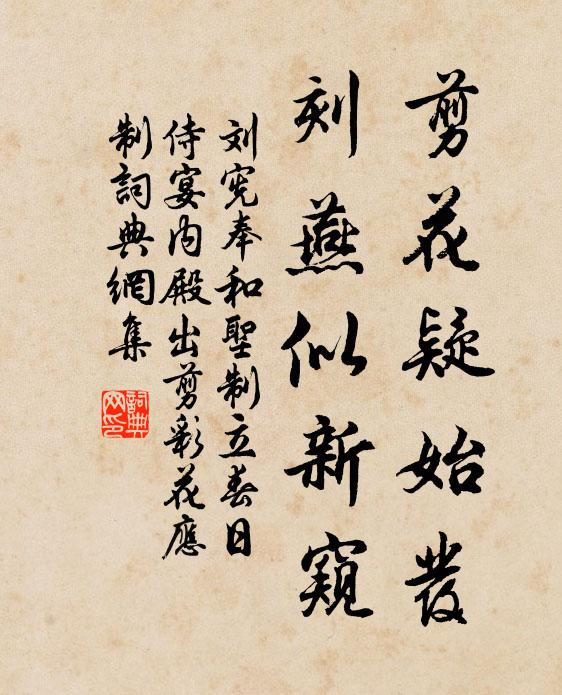 剪花疑始發
刻燕似新窺
刘宪奉和聖制立春日
侍宴内殿出剪彩花應
制詞典網集
詞典
网印